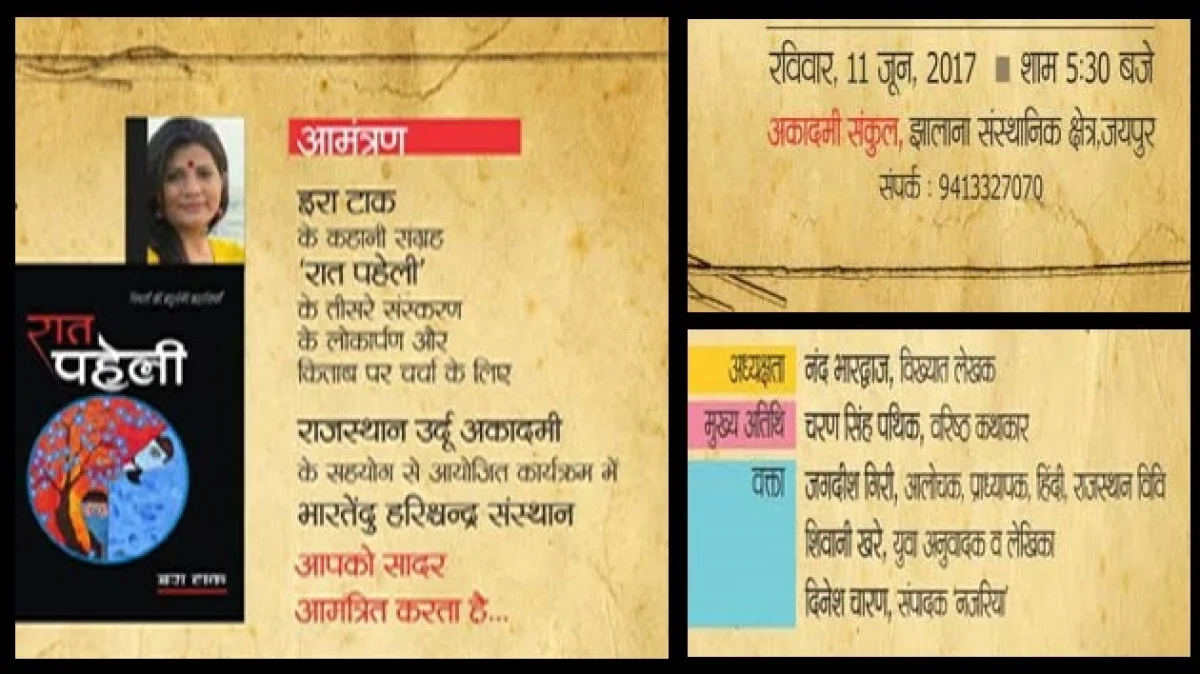 आमंत्रण
इरा टाक
के कहानी संग्रह
'रात पहेली'
के तीसरे संस्करण
के लोकार्पण और
किताब पर चर्चा के लिए
राजस्थान उर्दू अकादमी
के सहयोग से आयोजित कार्यक्रम में
भारतेंदु हरिश्चन्द्र संस्थान
आपको सादर
आमंत्रित करता है...
रात
पहेली
इरा टाक
रविवार, 11 जून, 2017 ■ शाम 5:30 बजे
अकादमी संकुल, झालाना संस्थानिक क्षेत्र,जयपुर
संपर्क : 9413327070
अध्यक्षता नंद भारद्वाज, विख्यात लेखक
मुख्य अतिथि चरण सिंह पथिक, वरिष्ठ कथाकार
वक्ता जगदीश गिरी, आलोचक, प्राध्यापक, हिंदी, राजस्थान विवि
शिवानी खरे, युवा अनुवादक व लेखिका
दिनेश चारण, संपादक 'नजरिया'